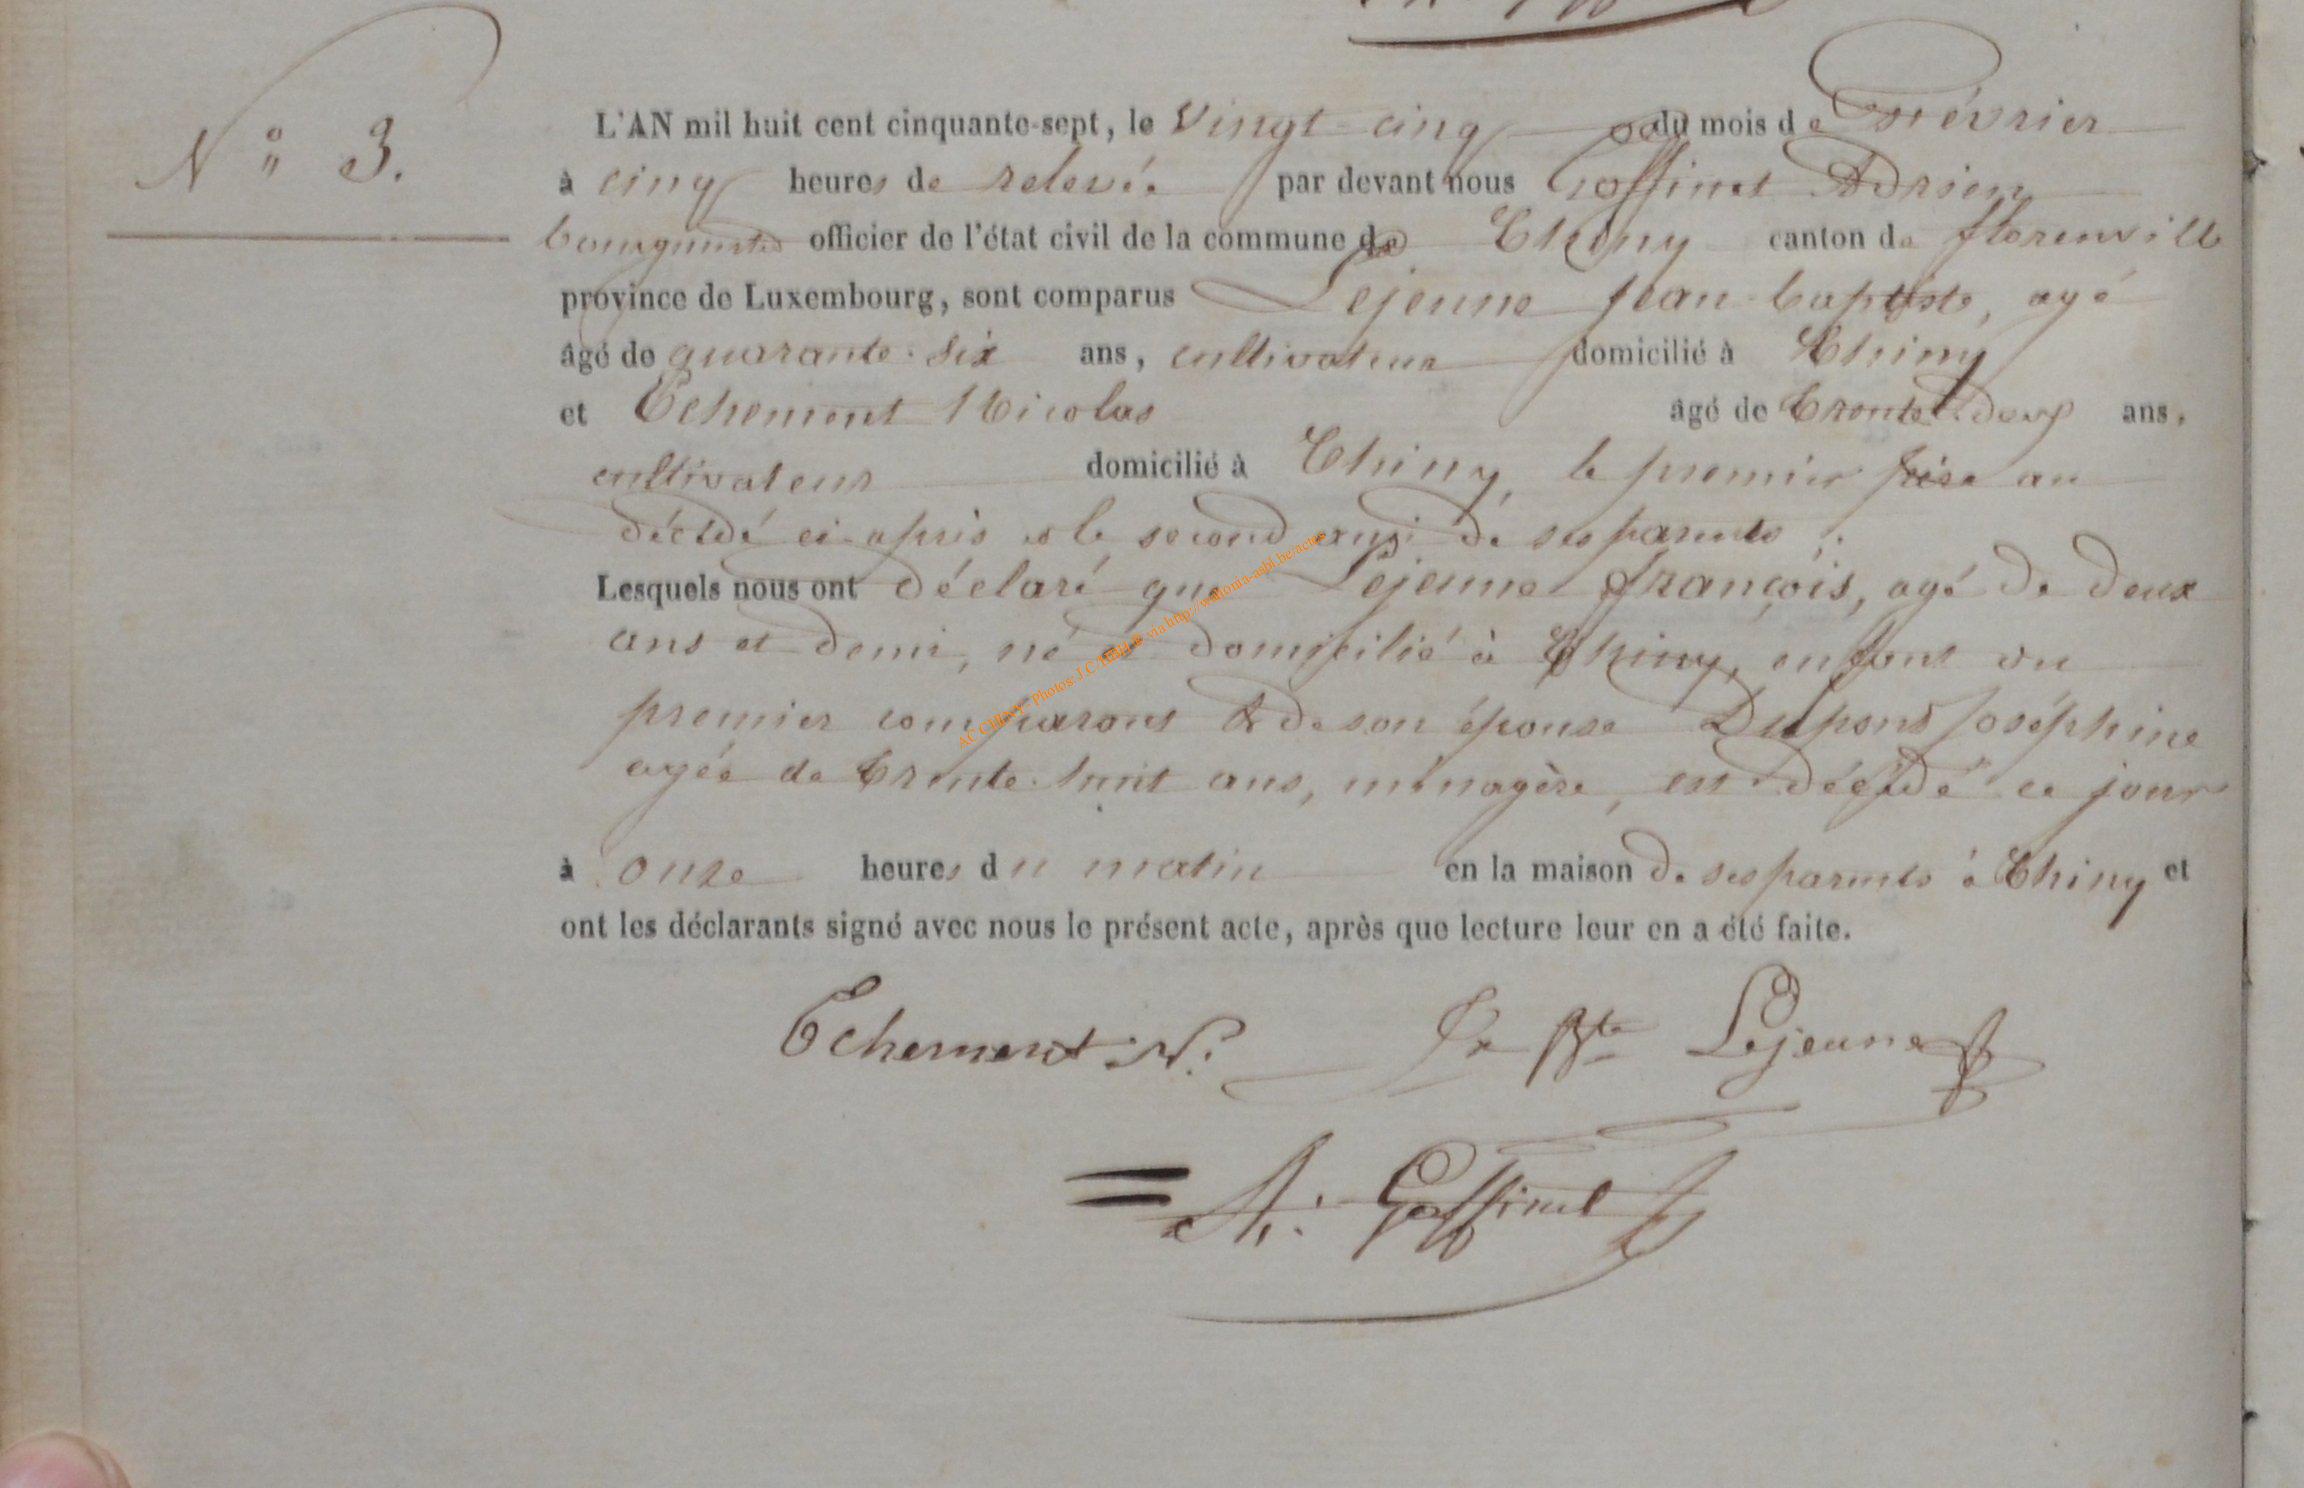 N° 3.
L'AN mil huit cent cinquante-sept, le vingt-cinq du mois de Février
à cinq heures de relevée par devant nous Goffinet Adrien
bourgmestre officier de l'état civil de la commune de Chiny canton de florenville
province de Luxembourg, sont comparus Lejeune Jean-baptiste, agé
âgé de quarante-six ans, cultivateur domicilié à Chiny
et Echement Nicolas âgé de trente-deux ans,
cultivateur domicilié à Chiny, le premier père au
décédé ci-après et le second ami de ses parents.
Lesquels nous ont déclaré que Lejeune françois, agé de deux
ans et demi, né et domicilié à Chiny, enfant du
premier comparant & de son épouse Dupont Joséphine
agée de trente-huit ans, ménagère, est décédé ce jour
à onze heures du matin en la maison de ses parents à Chiny et
ont les déclarants signé avec nous le présent acte, après que lecture leur en a été faite.
Echement N. Jn Bte Lejeune
A. Goffinet
via http://wallonia-asbl.be/actes